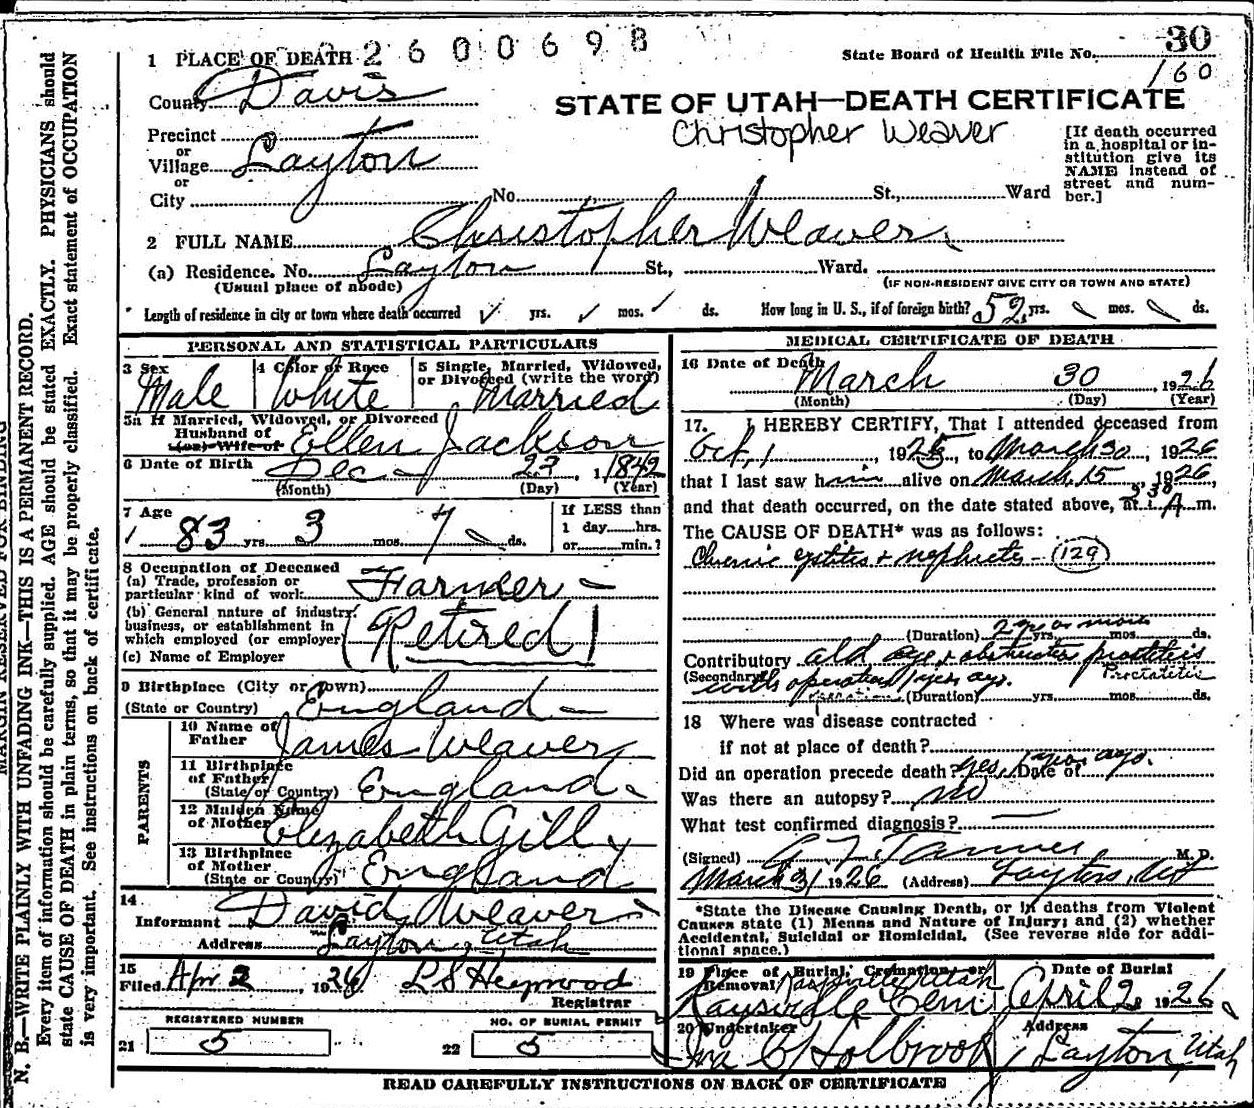 2600698
State Board of Health File No. 30
160
1 PLACE OF DEATH
County Davis
STATE OF UTAH—DEATH CERTIFICATE
Christopher Weaver
Precinct
or
Village Layton
or
City
No. St., Ward
[If death occurred
in a hospital or in-
stitution give its
NAME instead of
street and num-
ber.]
2 FULL NAME Christopher Weaver
(a) Residence. No. Layton St., Ward.
(Usual place of abode)
(IF NON-RESIDENT GIVE CITY OR TOWN AND STATE)
Length of residence in city or town where death occurred yrs. mos. ds. How long in U. S., if of foreign birth? 52 yrs. mos. ds.
PERSONAL AND STATISTICAL PARTICULARS
3 Sex Male
4 Color or Race White
5 Single, Married, Widowed,
or Divorced (write the word) Married
5a If Married, Widowed, or Divorced
Husband of Ellen Jackson
(or) Wife of
6 Date of Birth Dec 23, 1842
(Month) (Day) (Year)
7 Age 83 yrs. 3 mos. 7 ds.
If LESS than
1 day hrs.
or min.?
8 Occupation of Deceased
(a) Trade, profession or
particular kind of work Farmer
(b) General nature of industry,
business, or establishment in
which employed (or employer (Retired)
(c) Name of Employer
9 Birthplace (City or Town)
(State or Country) England
PARENTS
10 Name of
Father James Weaver
11 Birthplace
of Father
(State or Country) England
12 Maiden Name
of Mother Elizabeth Gill
13 Birthplace
of Mother
(State or Country) England
14
Informant David Weaver
Address Layton, Utah
15
Filed Apr 2, 1926 L S Heywood
Registrar
REGISTERED NUMBER
21 5
NO. OF BURIAL PERMIT
22 5
MEDICAL CERTIFICATE OF DEATH
16 Date of Death March 30, 1926
(Month) (Day) (Year)
17. I HEREBY CERTIFY, That I attended deceased from
Oct, 1, 1925, to March 30, 1926
that I last saw him alive on March 15, 1926,
and that death occurred, on the date stated above, at 530 A m.
The CAUSE OF DEATH* was as follows:
Chronic cystitis + nephritis — (129)
(Duration) 2 yrs. or more mos. ds.
Contributory old age & obstructive prostatitis
(Secondary) with operation 1 year ago. Prostatitis
operation (Duration) yrs. mos. ds.
18 Where was disease contracted
if not at place of death?
Did an operation precede death? Yes, Date of 1 year ago.
Was there an autopsy? no
What test confirmed diagnosis? —
(Signed) Tanner M. D.
March 31 1926 (Address) Layton, Ut
*State the Disease Causing Death, or in deaths from Violent
Causes state (1) Means and Nature of Injury; and (2) whether
Accidental, Suicidal or Homicidal. (See reverse side for addi-
tional space.)
19 Place of Burial, Cremation, or
Removal Kaysville Utah
Kaysville Cem
Date of Burial
April 2, 1926
20 Undertaker
Ira C Holbrook
Address
Layton, Utah
READ CAREFULLY INSTRUCTIONS ON BACK OF CERTIFICATE
MARGIN RESERVED FOR BINDING
N. B.—WRITE PLAINLY WITH UNFADING INK—THIS IS A PERMANENT RECORD.
Every item of information should be carefully supplied. AGE should be stated EXACTLY. PHYSICIANS should
state CAUSE OF DEATH in plain terms, so that it may be properly classified. Exact statement of OCCUPATION
is very important. See instructions on back of certificate.